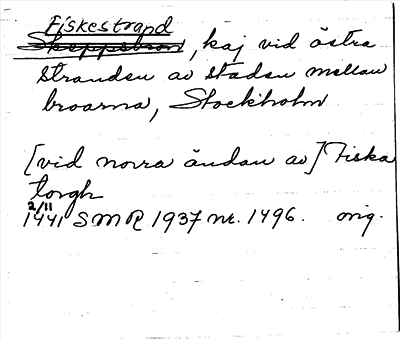 Fiskestrand
Skeppsbron, kaj vid östra
stranden av staden mellan
broarna, Stockholm
[vid norra ändan av] Fiska
torgh
2/11
1441 SMR 1937 nr. 1496. orig.